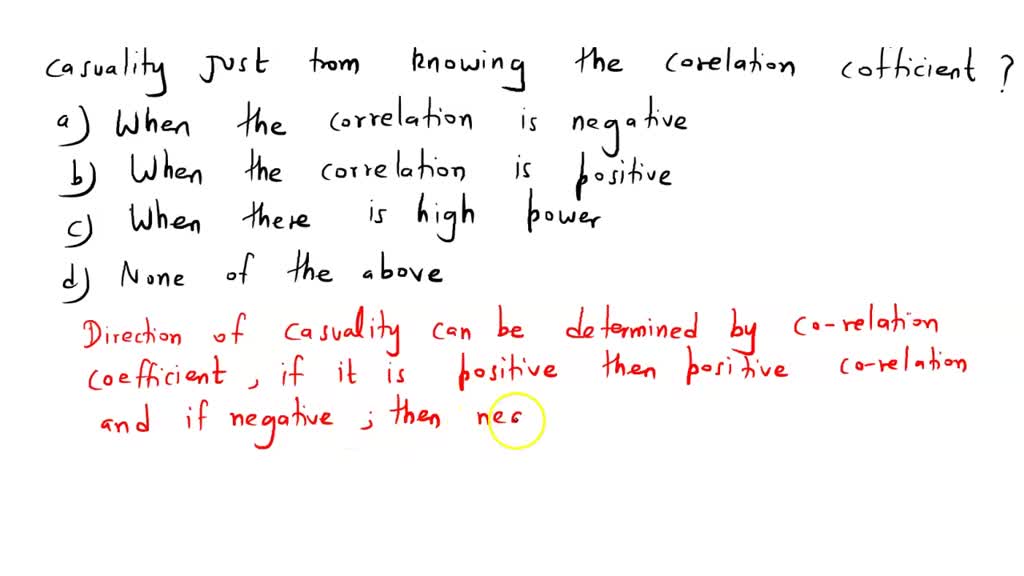 casuality just from knowing the corelation cofficient ?
a) When the correlation is negative
b) When the correlation is positive
c) When there is high power
d) None of the above
Direction of casuality can be determined by co-relation
coefficient, if it is positive then positive co-relation
and if negative ; then neg